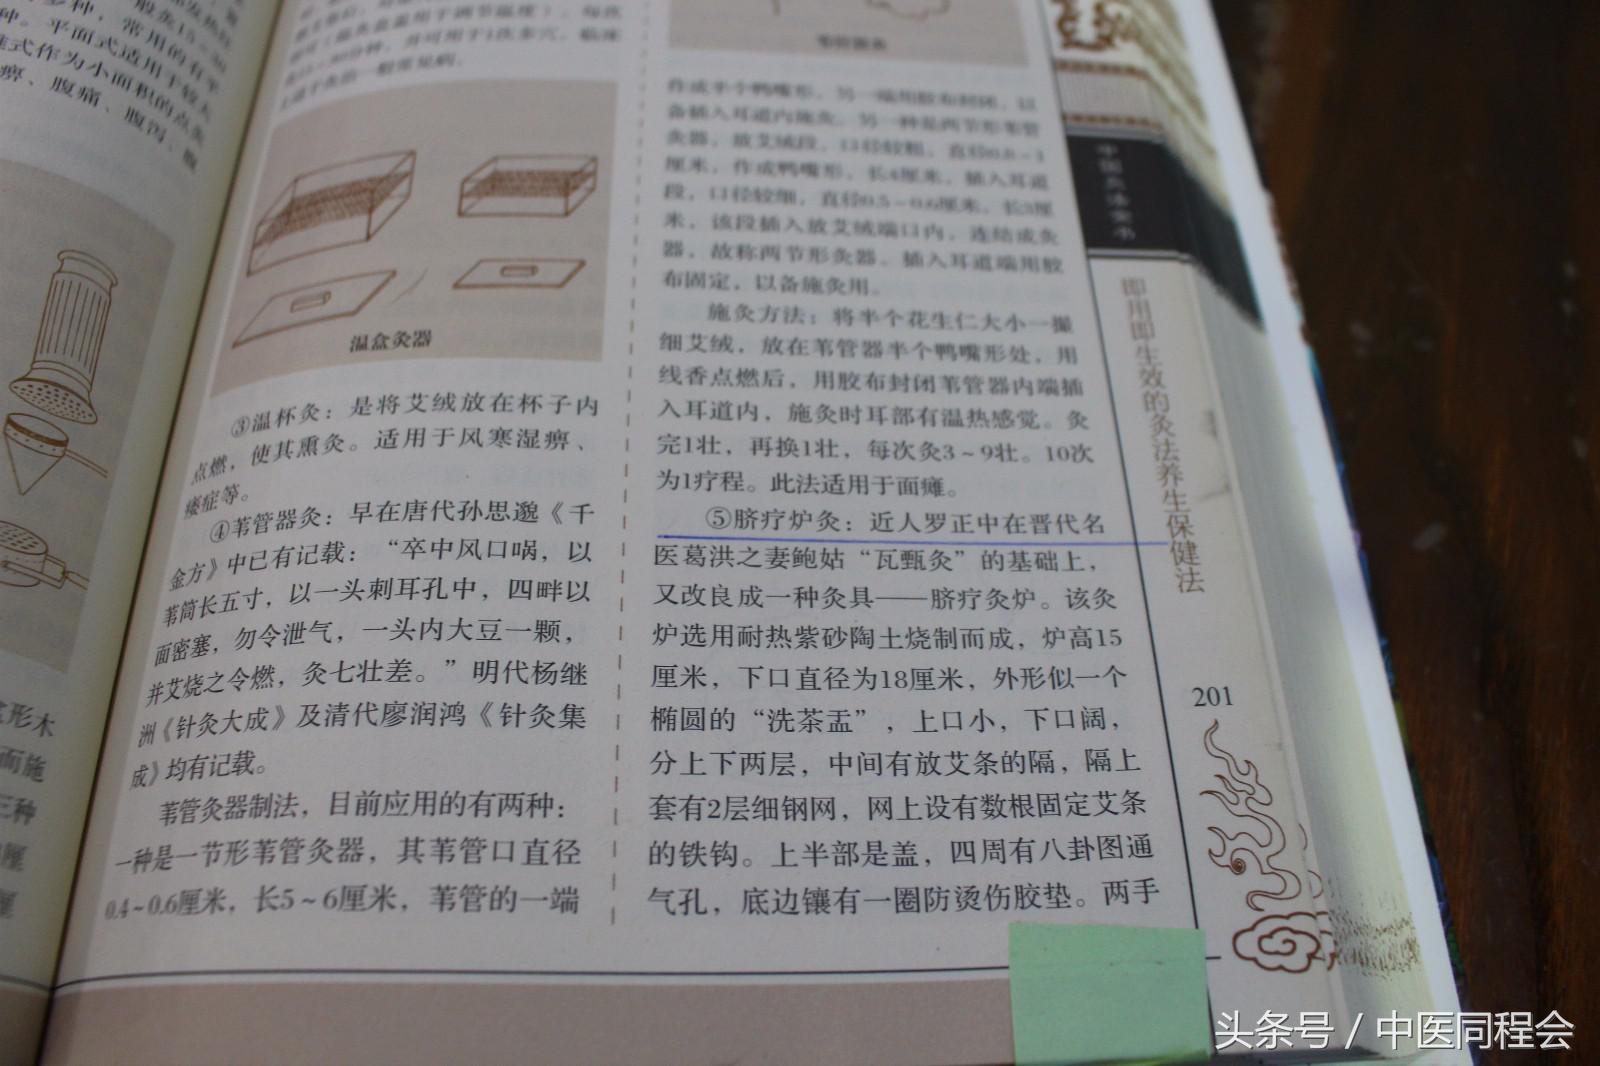 般灸15~30
多种，常用的有平
种。平面式适用于较大
式作为小面积的点灸
痹、腹痛、腹泻、腹
形木
而施
三种
厘
上适于灸治一般常见病。
温盒灸器
③温杯灸：是将艾绒放在杯子内
点燃，使其熏灸。适用于风寒湿痹、
痿症等。
④苇管器灸：早在唐代孙思邈《千
金方》中已有记载：“卒中风口㖞，以
苇筒长五寸，以一头刺耳孔中，四畔以
面密塞，勿令泄气，一头内大豆一颗，
并艾烧之令燃，灸七壮差。”明代杨继
洲《针灸大成》及清代廖润鸿《针灸集
成》均有记载。
苇管灸器制法，目前应用的有两种：
一种是一节形苇管灸器，其苇管口直径
0.4~0.6厘米，长5~6厘米，苇管的一端
作成半个鸭嘴形，另一端用胶布封闭，以
备插入耳道内施灸。另一种是两节形苇管
灸器，放艾绒段，口径较粗，直径0.8~1
厘米，作成鸭嘴形，长4厘米，插入耳道
段，口径较细，直径0.5~0.6厘米，长3厘
米，该段插入放艾绒端口内，连结成灸
器，故称两节形灸器。插入耳道端用胶
布固定，以备施灸用。
施灸方法：将半个花生仁大小一撮
细艾绒，放在苇管器半个鸭嘴形处，用
线香点燃后，用胶布封闭苇管器内端插
入耳道内，施灸时耳部有温热感觉。灸
完1壮，再换1壮，每次灸3~9壮。10次
为1疗程。此法适用于面瘫。
⑤脐疗炉灸：近人罗正中在晋代名
医葛洪之妻鲍姑“瓦甄灸”的基础上，
又改良成一种灸具——脐疗灸炉。该灸
炉选用耐热紫砂陶土烧制而成，炉高15
厘米，下口直径为18厘米，外形似一个
椭圆的“洗茶盂”，上口小，下口阔，
分上下两层，中间有放艾条的隔，隔上
套有2层细钢网，网上设有数根固定艾条
的铁钩。上半部是盖，四周有八卦图通
气孔，底边镶有一圈防烫伤胶垫。两手
中国灸法全书
即用即生效的灸法养生保健法
201
头条号 / 中医同程会